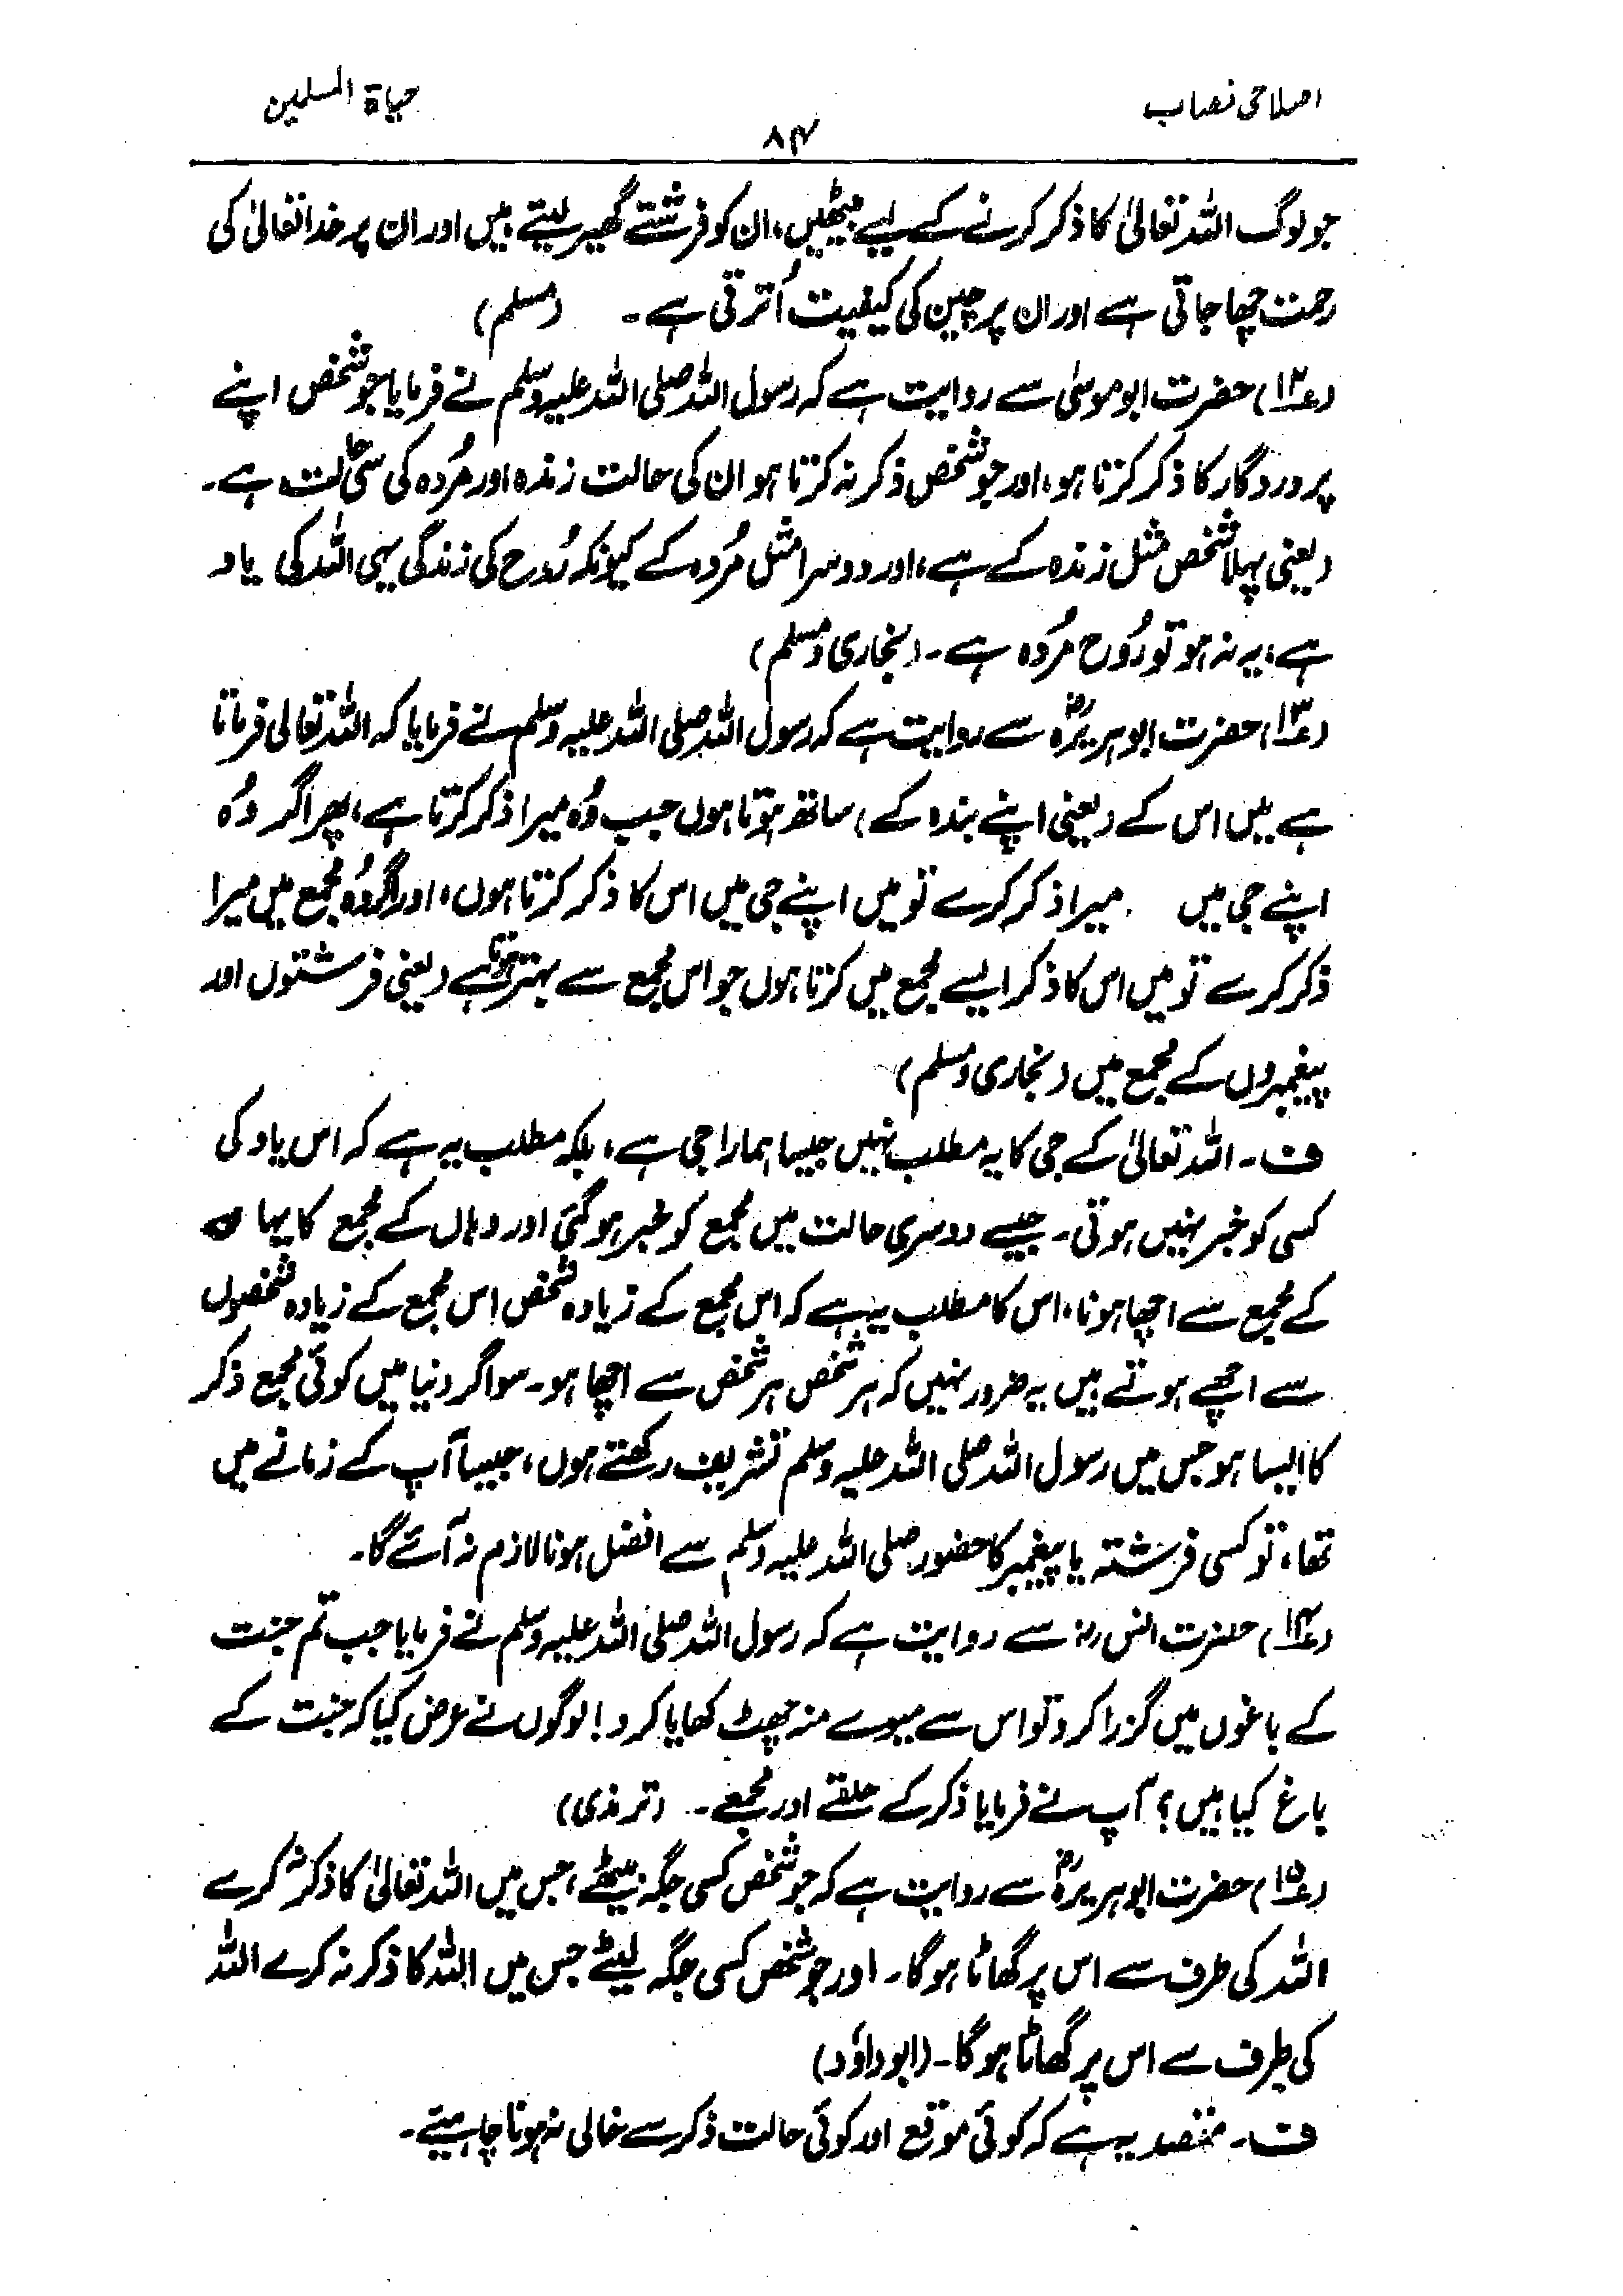 اصلاحی نصاب
۸۴
حیاۃ المسلمین
جو لوگ اللہ تعالیٰ کا ذکر کرنے کے لیے بیٹھیں، ان کو فرشتے گھیر لیتے ہیں اور ان پر خدا تعالیٰ کی
رحمت چھا جاتی ہے اور ان پر چین کی کیفیت اُترتی ہے۔ (مسلم)
(۱۲) حضرت ابو موسیٰ سے روایت ہے کہ رسول اللہ صلی اللہ علیہ وسلم نے فرمایا جو شخص اپنے
پروردگار کا ذکر کرتا ہو، اور جو شخص ذکر نہ کرتا ہو ان کی حالت زندہ اور مُردہ کی سی حالت ہے۔
(یعنی پہلا شخص مثل زندہ کے ہے، اور دوسرا مثل مُردہ کے کیونکہ رُوح کی زندگی یہی اللہ کی یاد
ہے، یہ نہ ہو تو رُوح مُردہ ہے۔ (بخاری و مسلم)
(۱۳) حضرت ابو ہریرہؓ سے روایت ہے کہ رسول اللہ صلی اللہ علیہ وسلم نے فرمایا کہ اللہ تعالی فرماتا
ہے میں اس کے (یعنی اپنے بندہ کے) ساتھ ہوتا ہوں جب وُہ میرا ذکر کرتا ہے، پھر اگر وُہ
اپنے جی میں میرا ذکر کرے تو میں اپنے جی میں اس کا ذکر کرتا ہوں، اور اگر وُہ مجمع میں میرا
ذکر کرے تو میں اس کا ذکر ایسے مجمع میں کرتا ہوں جو اس مجمع سے بہتر ہوتا ہے (یعنی فرشتوں اور
پیغمبروں کے مجمع میں (بخاری و مسلم)
ف۔ اللہ تعالیٰ کے جی کا یہ مطلب نہیں جیسا ہمارا جی ہے، بلکہ مطلب یہ ہے کہ اس یاد کی
کسی کو خبر نہیں ہوتی۔ جیسے دوسری حالت میں مجمع کو خبر ہو گئی اور وہاں کے مجمع کا یہاں
کے مجمع سے اچھا ہونا، اس کا مطلب یہ ہے کہ اس مجمع کے زیادہ شخص اِس مجمع کے زیادہ شخصوں
سے اچھے ہوتے ہیں یہ ضرور نہیں کہ ہر شخص ہر شخص سے اچھا ہو۔ سو اگر دنیا میں کوئی مجمع ذکر
کا ایسا ہو جس میں رسول اللہ صلی اللہ علیہ وسلم تشریف رکھتے ہوں، جیسا آپ کے زمانے میں
تھا، تو کسی فرشتہ یا پیغمبر کا حضور صلی اللہ علیہ وسلم سے افضل ہونا لازم نہ آئے گا۔
(۱۴) حضرت انس رضؓ سے روایت ہے کہ رسول اللہ صلی اللہ علیہ وسلم نے فرمایا جب تم جنت
کے باغوں میں گزرا کرو تو اس سے میوے منہ چھٹ کھایا کرو! لوگوں نے عرض کیا کہ جنت کے
باغ کیا ہیں؟ آپ نے فرمایا ذکر کے حلقے اور مجمعے۔ (ترمذی)
(۱۵) حضرت ابو ہریرہؓ سے روایت ہے کہ جو شخص کسی جگہ بیٹھے، جس میں اللہ تعالیٰ کا ذکر نہ کرے
اللہ کی طرف سے اس پر گھاٹا ہو گا۔ اور جو شخص کسی جگہ لیٹے جس میں اللہ کا ذکر نہ کرے اللہ
کی طرف سے اس پر گھاٹا ہو گا۔ (ابو داوٗد)
ف۔ مقصد یہ ہے کہ کوئی موقع اور کوئی حالت ذکر سے خالی نہ ہونا چاہیئے۔